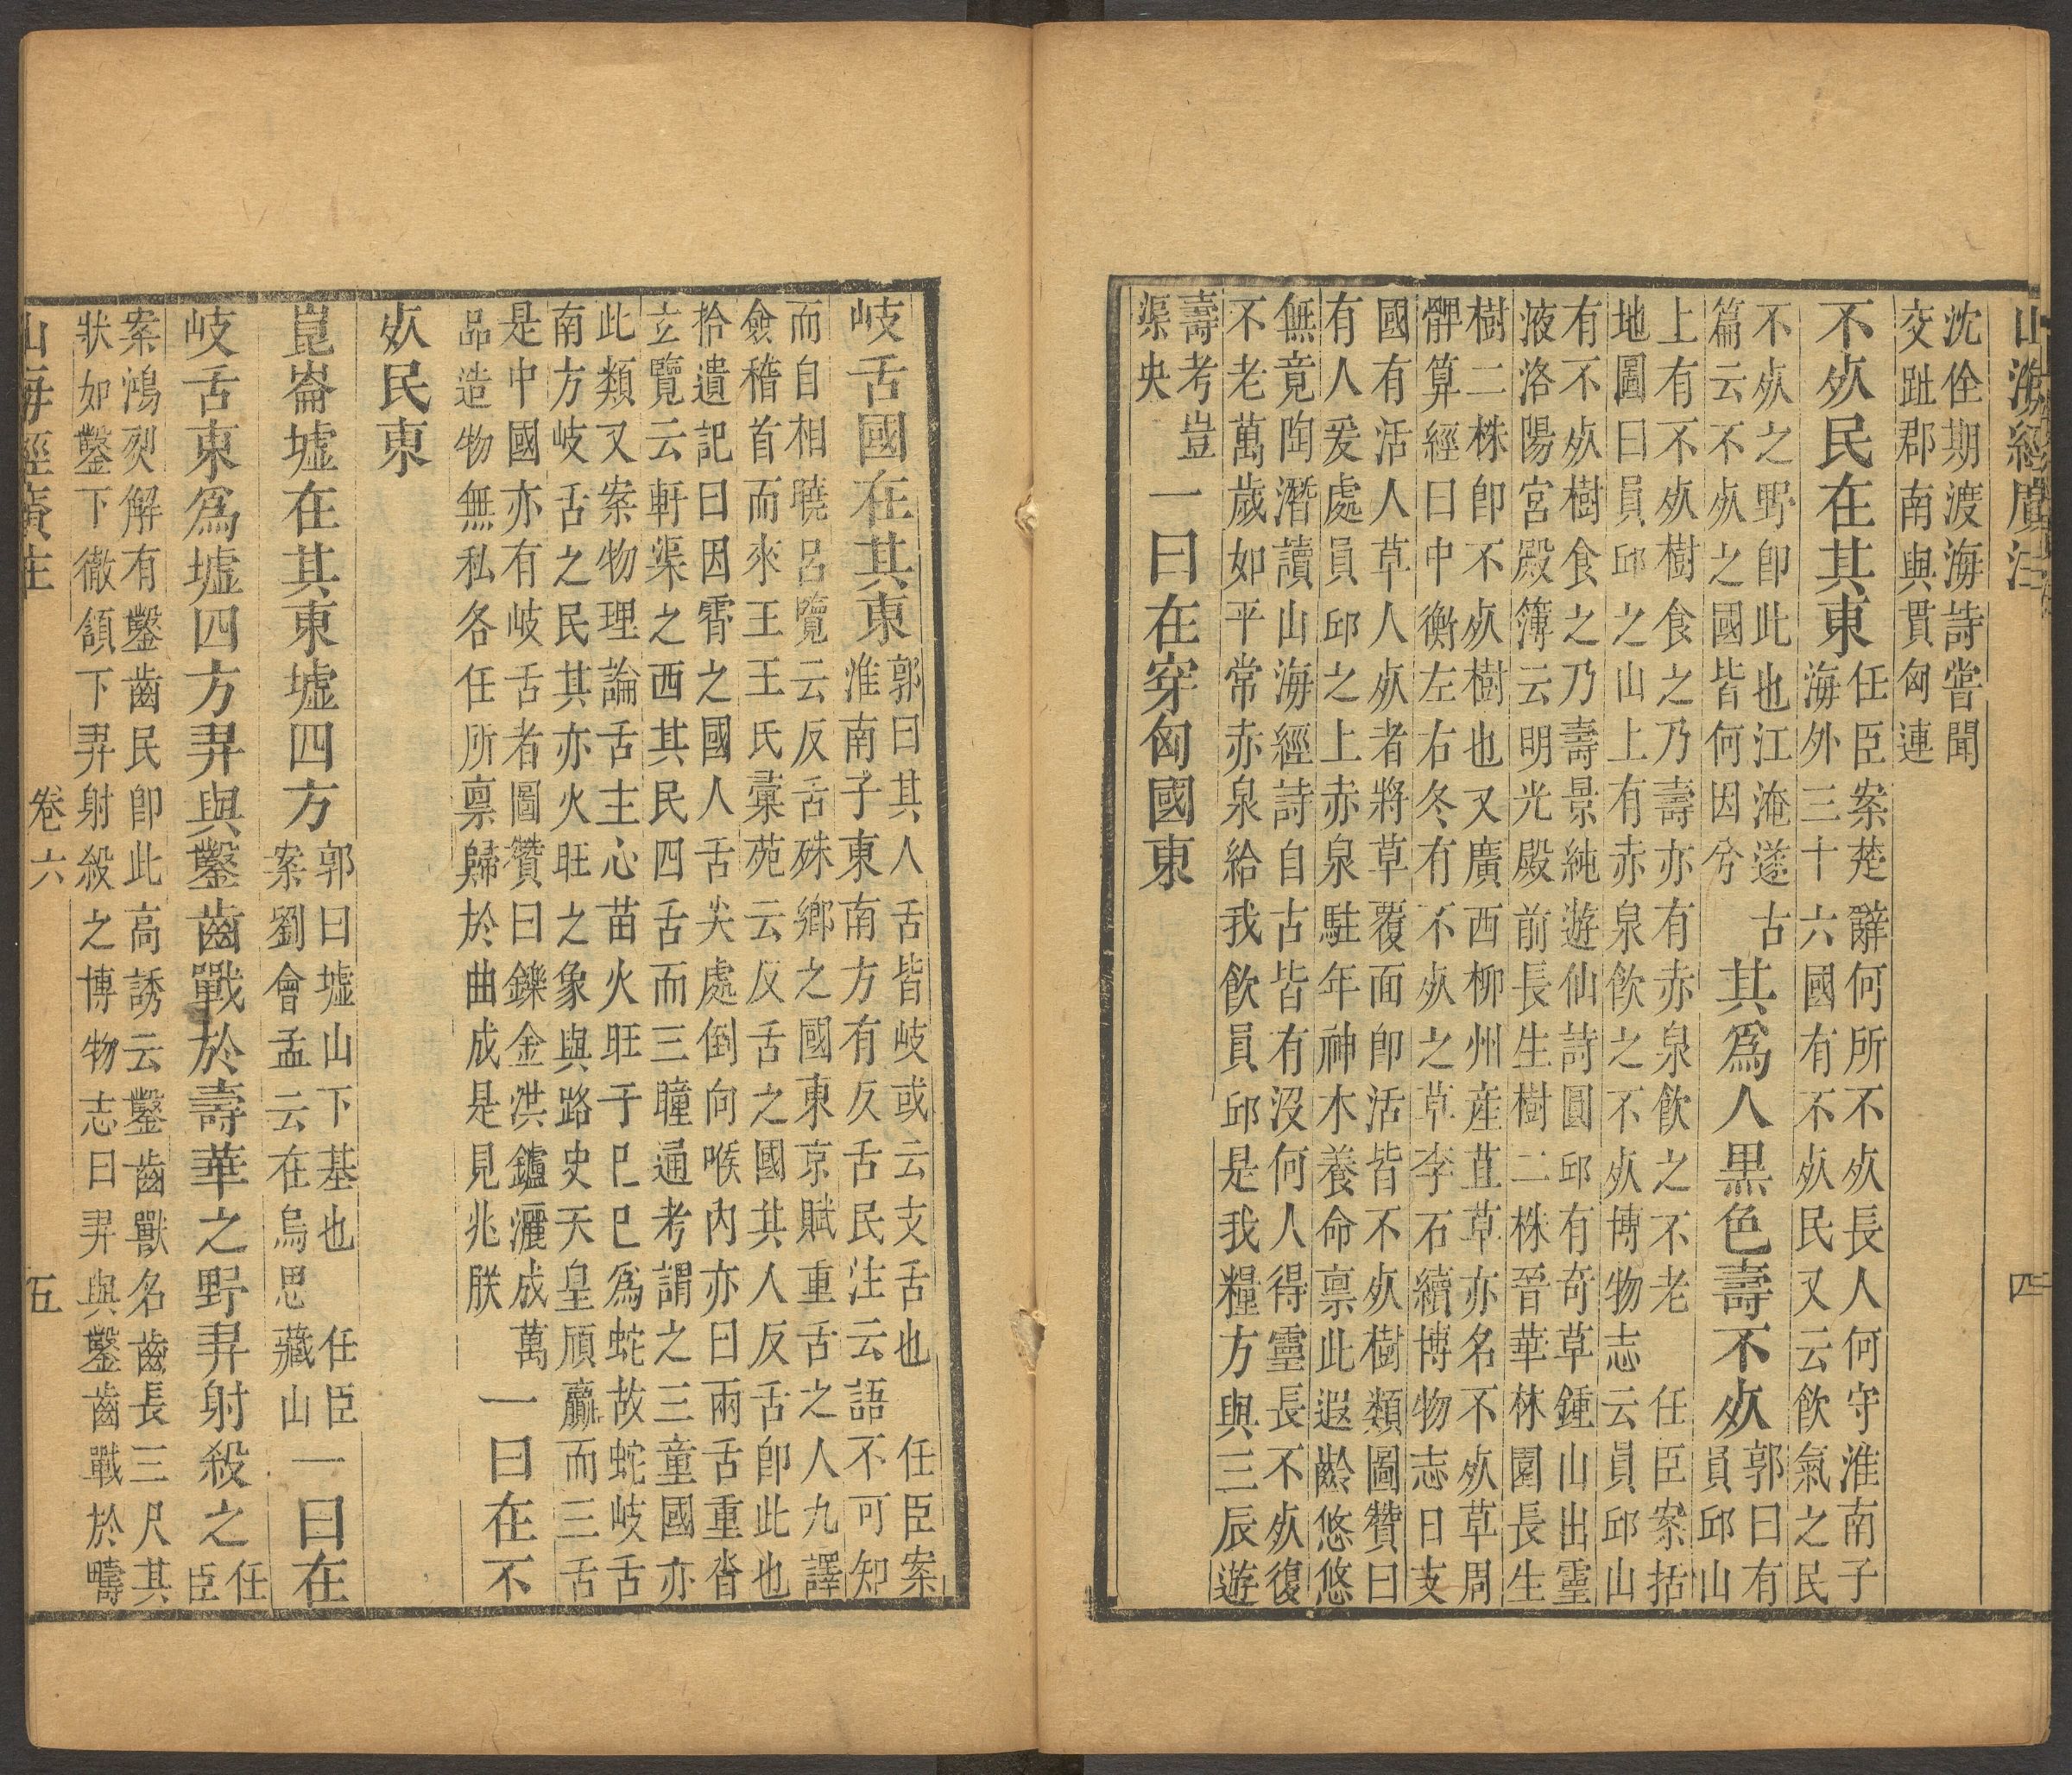 山海經廣注 四
沈佺期渡海詩嘗聞
交趾郡南與貫匈連
不死民在其東
任臣案楚辭何所不死長人何守淮南子
海外三十六國有不死民又云飲氣之民
不死之野卽此也江淹遂古
篇云不死之國皆何因兮
其爲人黑色壽不死
郭曰有
員邱山
上有不死樹食之乃壽亦有赤泉飲之不老 任臣案括
地圖曰員邱之山上有赤泉飲之不死博物志云員邱山
有不死樹食之乃壽景純遊仙詩圓邱有奇草鍾山出靈
液洛陽宮殿簿云明光殿前長生樹二株晉華林園長生
樹二株卽不死樹也又廣西柳州產苴草亦名不死草周
髀算經曰中衡左右冬有不死之草李石續博物志曰支
國有活人草人死者將草覆面卽活皆不死樹類圖贊曰
有人爰處員邱之上赤泉駐年神木養命禀此遐齡悠悠
無竟陶潛讀山海經詩自古皆有沒何人得靈長不死復
不老萬歲如平常赤泉給我飲員邱是我糧方與三辰遊
壽考豈
渠央
一曰在穿匈國東
岐舌國在其東
郭曰其人舌皆岐或云支舌也 任臣案
淮南子東南方有反舌民注云語不可知
而自相曉呂覽云反舌硃鄉之國東京賦重舌之人九譯
僉稽首而來王王氏彚苑云反舌之國其人反舌卽此也
拾遺記曰因霄之國人舌尖處倒向喉內亦曰兩舌重沓
玄覽云軒渠之西其民四舌而三瞳通考謂之三童國亦
此類又案物理論舌主心苗火旺于巳巳爲蛇故蛇岐舌
南方岐舌之民其亦火旺之象與路史天皇頎羸而三舌
是中國亦有岐舌者圖贊曰鑠金洪鑪灑成萬
品造物無私各任所禀歸於曲成是見兆朕
一曰在不
死民東
崑崙墟在其東墟四方
郭曰墟山下基也 任臣
案劉會孟云在烏思藏山
一曰在
岐舌東爲墟四方羿與鑿齒戰於壽華之野羿射殺之
任
臣
案鴻烈解有鑿齒民卽此高誘云鑿齒獸名齒長三尺其
狀如鑿下徹頷下羿射殺之博物志曰羿與鑿齒戰於疇
山海經廣注 卷六 五